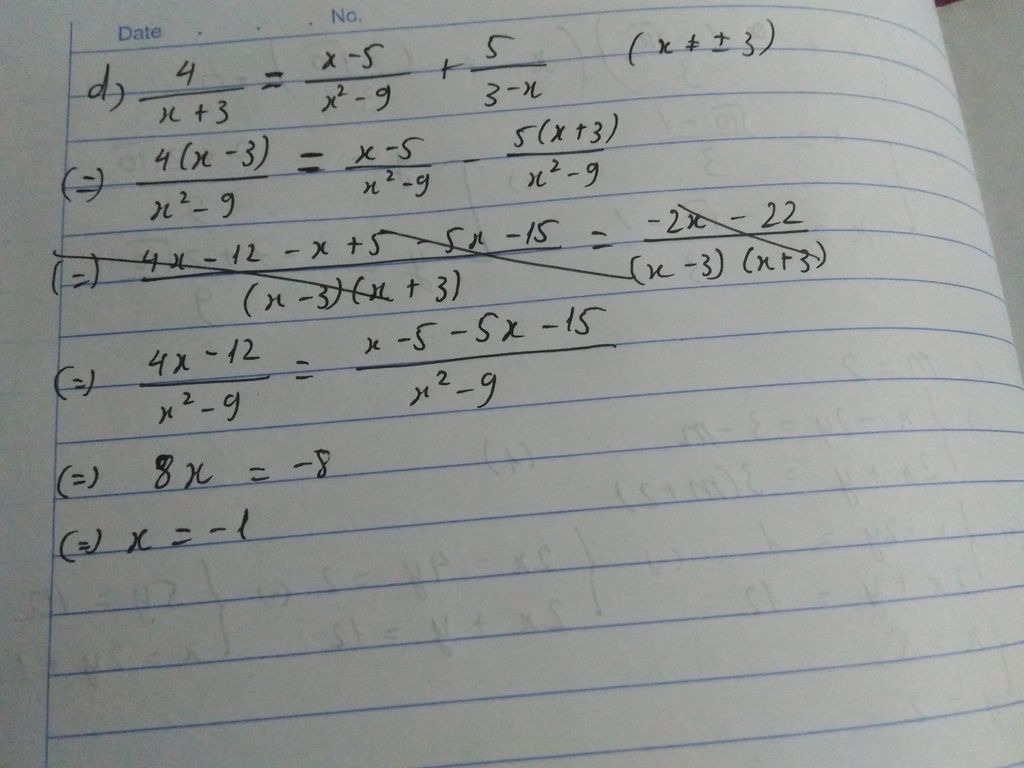 Date . . No.
d) 4/(x+3) = (x-5)/(x²-9) + 5/(3-x) (x ≠ ± 3)
(=) 4(x-3)/(x²-9) = (x-5)/(x²-9) - 5(x+3)/(x²-9)
(=) (4x-12-x+5-5x-15)/((x-3)(x+3)) = (-2x-22)/((x-3)(x+3))
(=) (4x-12)/(x²-9) = (x-5-5x-15)/(x²-9)
(=) 8x = -8
(=) x = -1